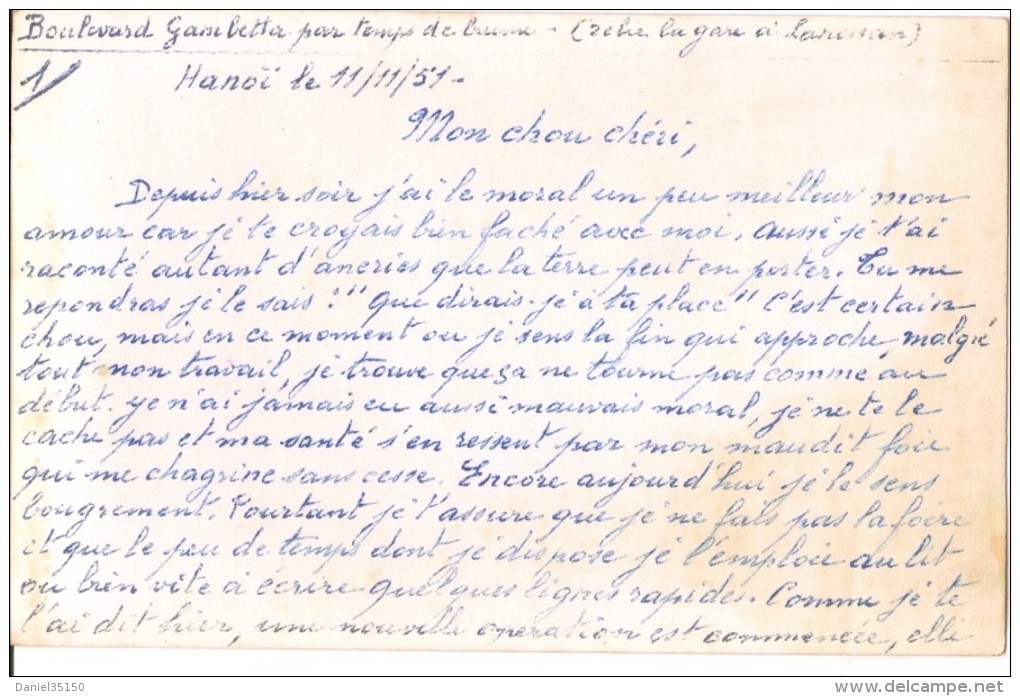 Boulevard Gambetta par temps de brume - (relie la gare à Lanessan)
1/
Hanoï le 11/11/51-
Mon chou chéri,
Depuis hier soir j'ai le moral un peu meilleur mon
amour car je te croyais bien faché avec moi, aussi je t'ai
raconté autant d'aneries que la terre peut en porter. Tu me
repondras je le sais : "que dirais-je à ta place" C'est certain
chou, mais en ce moment ou je sens la fin qui approche, malgré
tout mon travail, je trouve que ça ne tourne pas comme au
début. Je n'ai jamais eu aussi mauvais moral, je ne te le
cache pas et ma santé s'en ressent par mon maudit foie
qui me chagrine sans cesse. Encore aujourd'hui je le sens
bougrement. Pourtant je t'assure que je ne fais pas la foire
et que le peu de temps dont je dispose je l'emploie au lit
ou bien vite à écrire quelques lignes rapides. Comme je te
l'ai dit hier, une nouvelle operation est commencée, elle
Daniel35150
www.delcampe.net